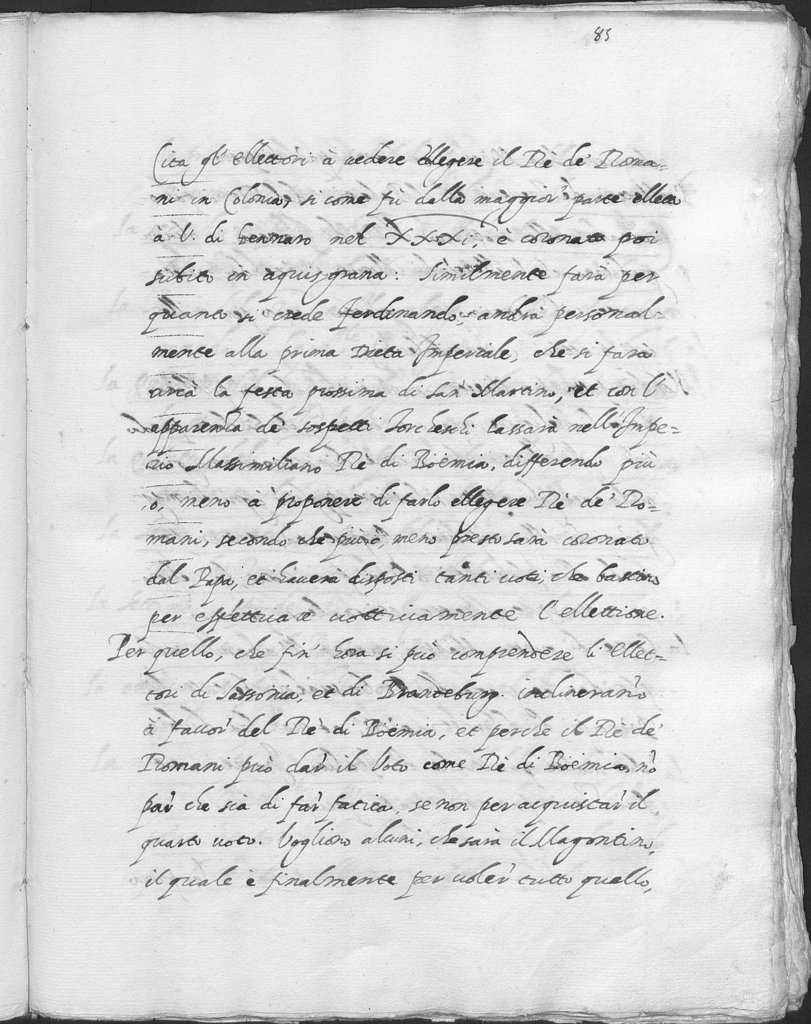 85
Cita gl' Ellettori à vedere ellegere il Rè de' Roma=
ni in Colonia, si come fù dalla maggior' parte elletto
à V. di Gennaro nel XXXi, è coronato poi
subito in aquisgrana: Similmente farà per
quanto si crede Ferdinando, andrà personal-
mente alla prima Dieta Imperiale, che si farà
circà la festa prossima di San Martino, et con l'
apparenza de' sospetti Torcheschi lassarà nell' Impe=
rio Massimiliano Rè di Boëmia, differendo più
,ò, meno à proponere di farlo ellegere Rè de' Ro=
mani, secondo che più, ò, meno presto sarà coronato
dal Papa, et haverà disposti tanti voti, che bastino
per effettuare l'ellettione.
Per quello, che fin' hora si può comprendere li Ellet=
tori di Sassonia, et di Brandeburg inclineranno
à favor' del Rè di Boëmia, et perche il Rè de'
Romani può dar' il Voto come Rè di Boëmia, nõ
par' che sia di far' fatica, se non per acquistar' il
quarto voto. Vogliono alcuni, che sarà il Magontino,
il quale è finalmente per voler' tutto quello,